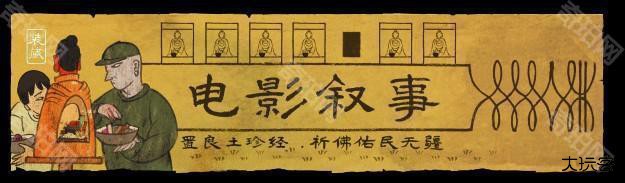 装臧
电影叙事
置良土珍经.祈佛佑民无疆
大玩客